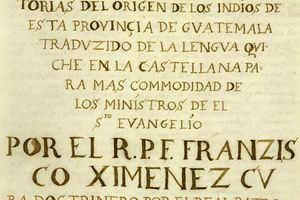 TORIAS DEL ORIGEN DE LOS INDIOS DE
ESTA PROVINCIA DE GUATEMALA
TRADUZIDO DE LA LENGUA QUI
CHE EN LA CASTELLANA PA
RA MAS COMMODIDAD DE
LOS MINISTROS DE EL
Sto EVANGELIO
POR EL R.P.F. FRANZIS
CO XIMENEZ CV
RA DOCTRINERO POR EL REAL PATRO